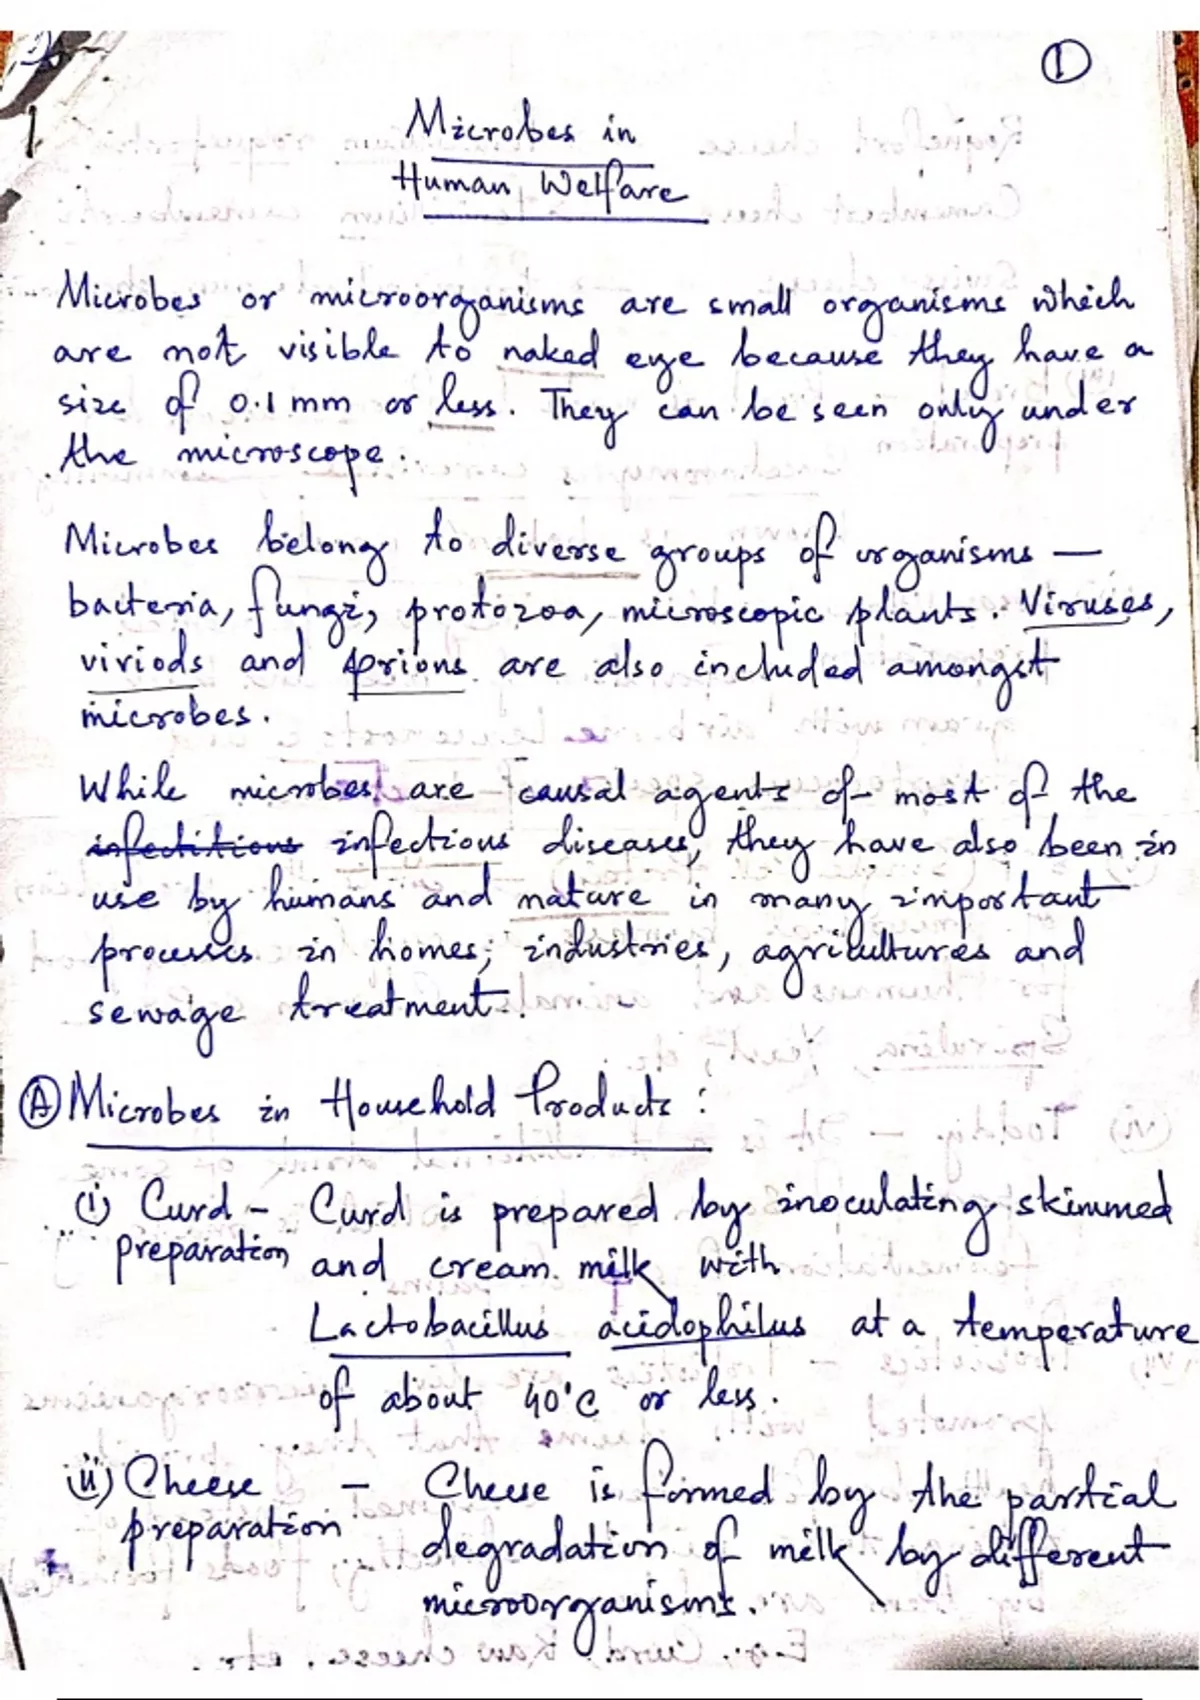 ①
Microbes in
Human Welfare
Microbes or microorganisms are small organisms which
are not visible to naked eye because they have a
size of 0.1 mm or less. They can be seen only under
the microscope.
Microbes belong to diverse groups of organisms —
bacteria, fungi, protozoa, microscopic plants. Viruses,
viriods and prions are also included amongst
microbes.
While microbes are causal agents of most of the
infectitious infectious diseases, they have also been in
use by humans and nature in many important
processes in homes, industries, agricultures and
sewage treatment.
Ⓐ Microbes in Household Products :
(i) Curd - Curd is prepared by inoculating skimmed
preparation and cream milk with
Lactobacillus acidophilus at a temperature
of about 40°C or less.
(ii) Cheese - Cheese is formed by the partial
preparation degradation of milk by different
microorganisms.